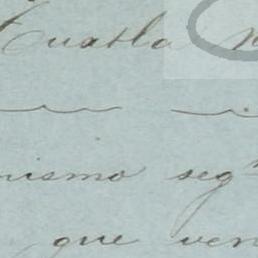 Cuautla
mismo seg.
que ven